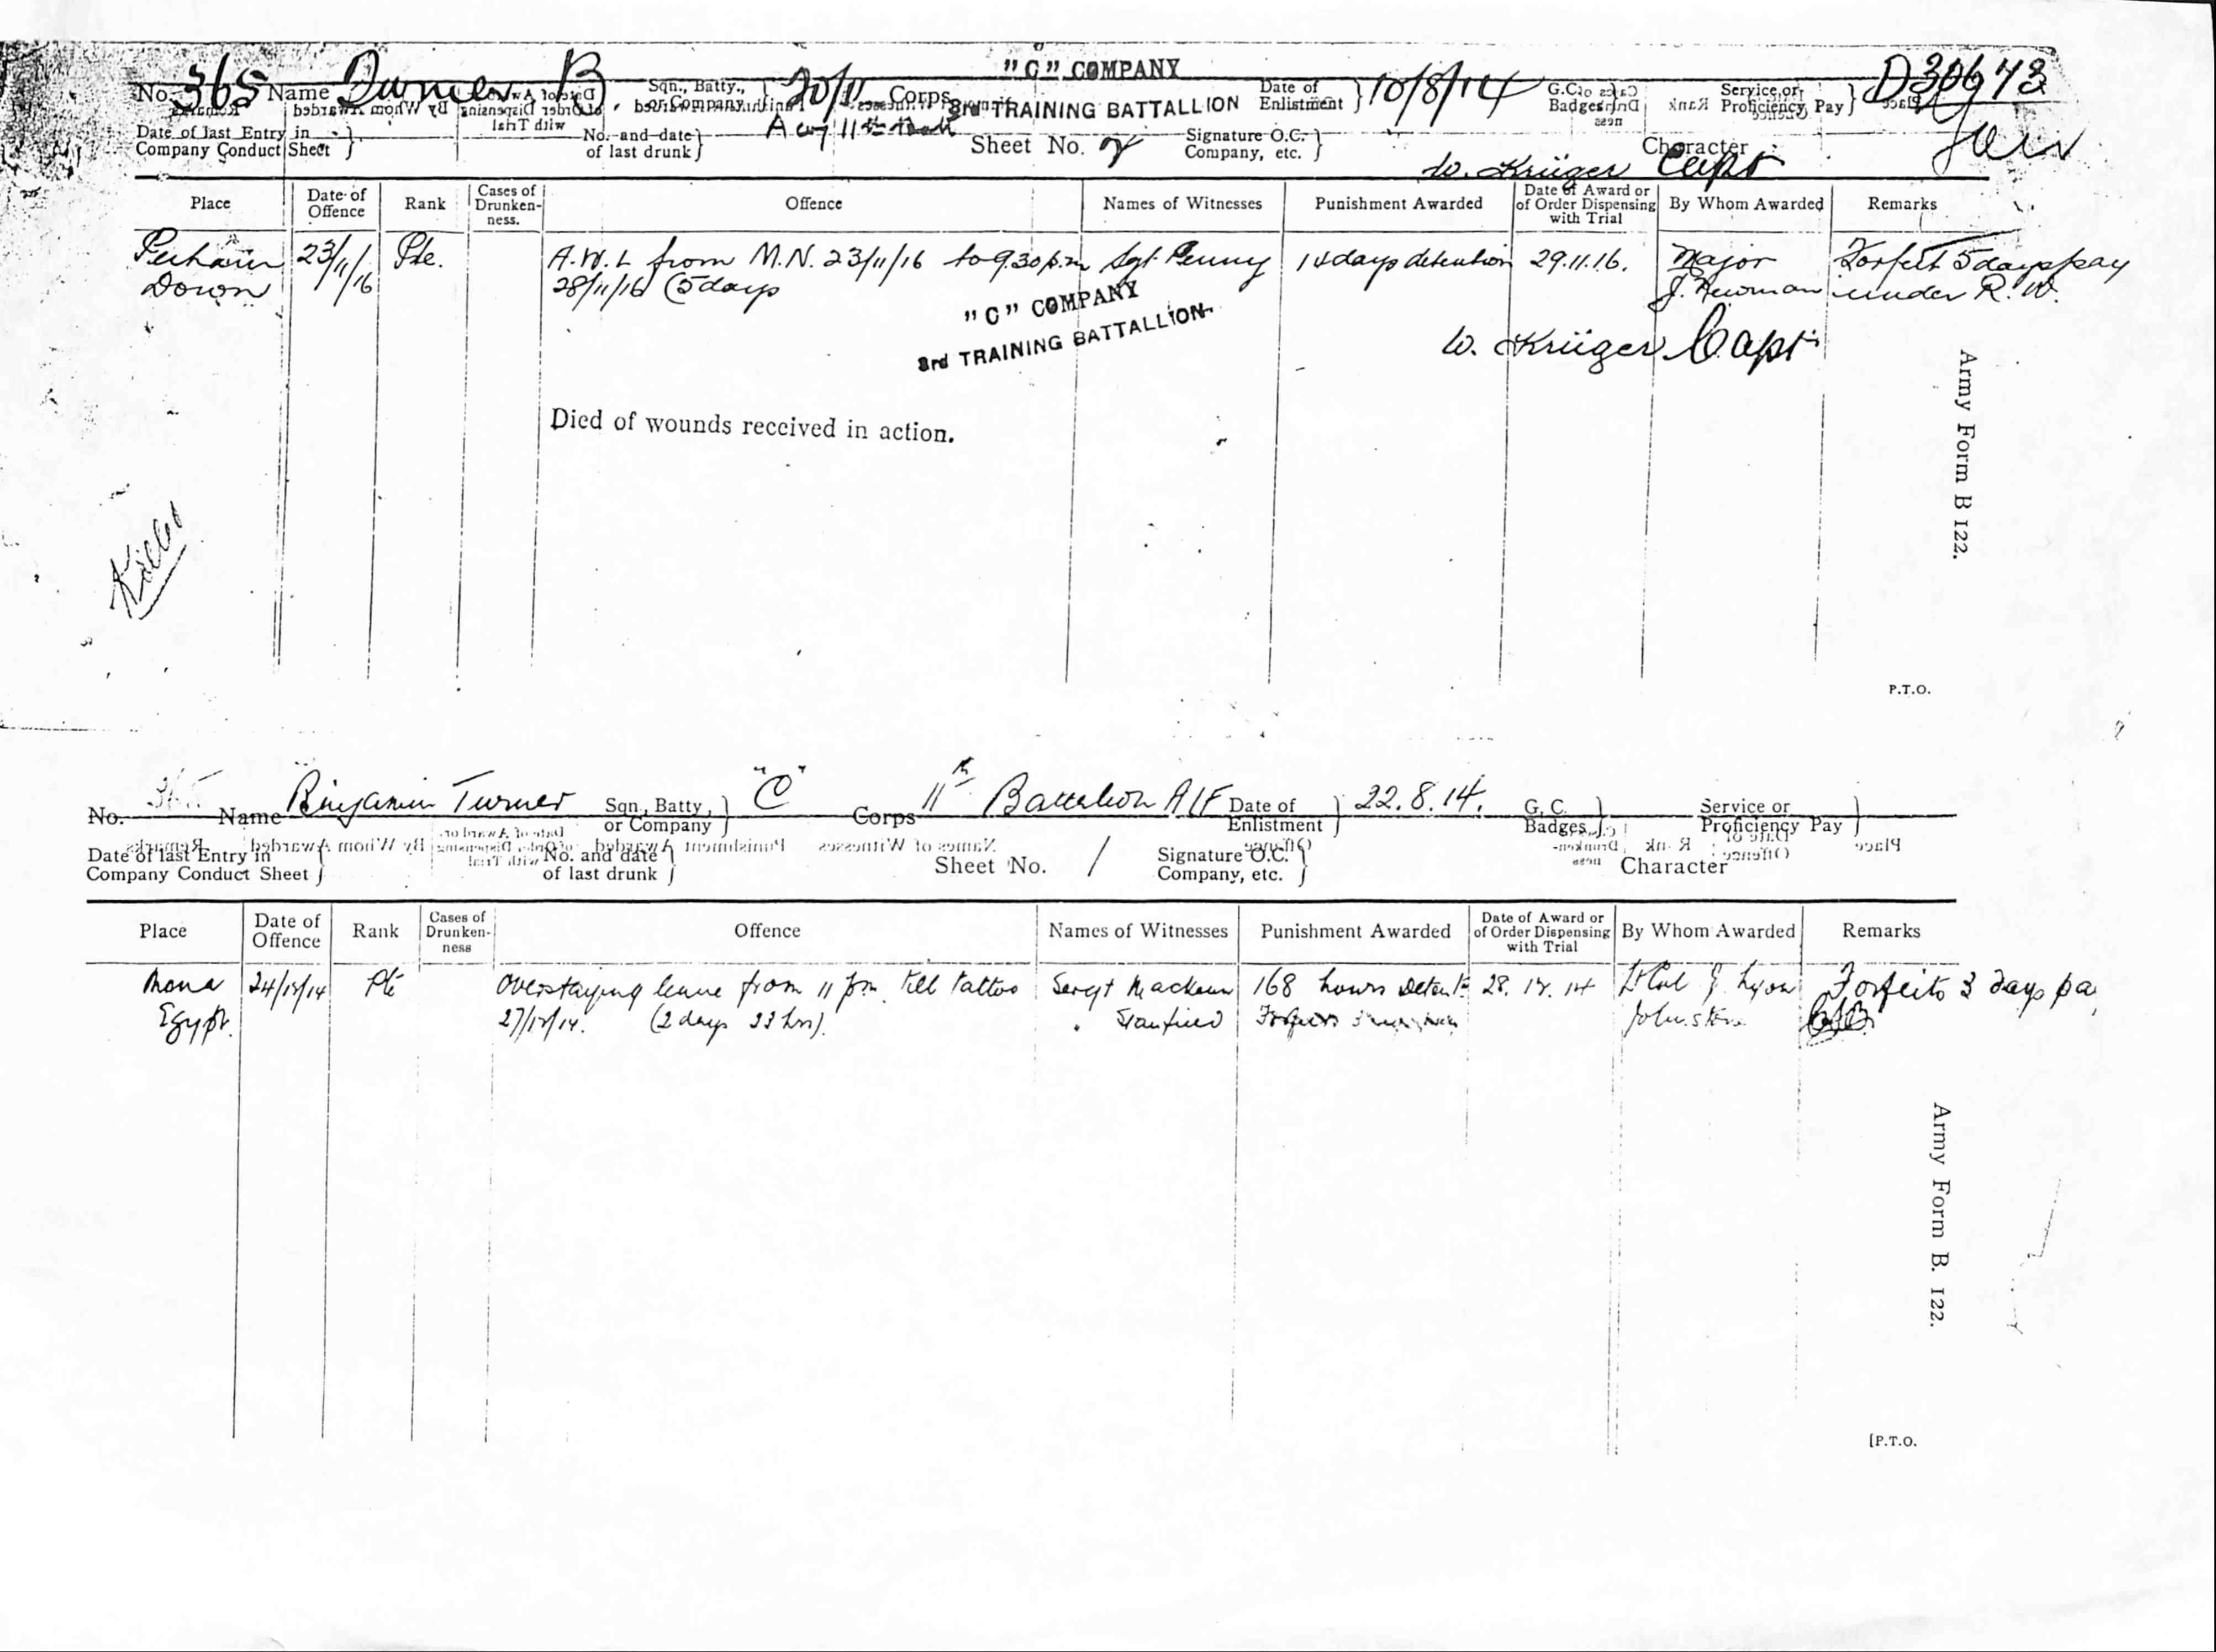 "C" COMPANY
No. 365 Name Turner B. Sqn., Batty., or Company 20/11 Corps 3rd TRAINING BATTALLION Date of Enlistment 10/8/14 G.C. Badges Service or Proficiency Pay D30643
Date of last Entry in Company Conduct Sheet No. and date of last drunk Sheet No. 2 Signature O.C. Company, etc. W. Krüger Capt Character
Place Date of Offence Rank Cases of Drunken-ness. Offence Names of Witnesses Punishment Awarded Date of Award or of Order Dispensing with Trial By Whom Awarded Remarks
Perham 23/11/16 Pte. A.W.L from M.N. 23/11/16 to 9.30 p.m Sgt. Penny 14 days detention 29.11.16. Major Forfeit 5 days pay
Down 28/11/16 (5 days J. Newman under R.W.
"C" COMPANY
3rd TRAINING BATTALLION
W. Krüger Capt
Died of wounds received in action.
Killed
Army Form B 122.
P.T.O.
No. 365 Name Binjamin Turner Sqn., Batty, or Company "C" Corps 11th Battalion AIF Date of Enlistment 22.8.14. G. C. Badges Service or Proficiency Pay
Date of last Entry in Company Conduct Sheet No. and date of last drunk Sheet No. 1 Signature O.C. Company, etc. Character
Place Date of Offence Rank Cases of Drunken-ness Offence Names of Witnesses Punishment Awarded Date of Award or of Order Dispensing with Trial By Whom Awarded Remarks
Mena 24/12/14 Pte Overstaying leave from 11 pm till tattoo Sergt 168 hours Detent 28.12.14 Lt Col J. Lyon Forfeits 3 days pa
Egypt. 27/12/14. (2 days 23 hrs). Stanfield Forfeits Johnston
Army Form B. 122.
[P.T.O.